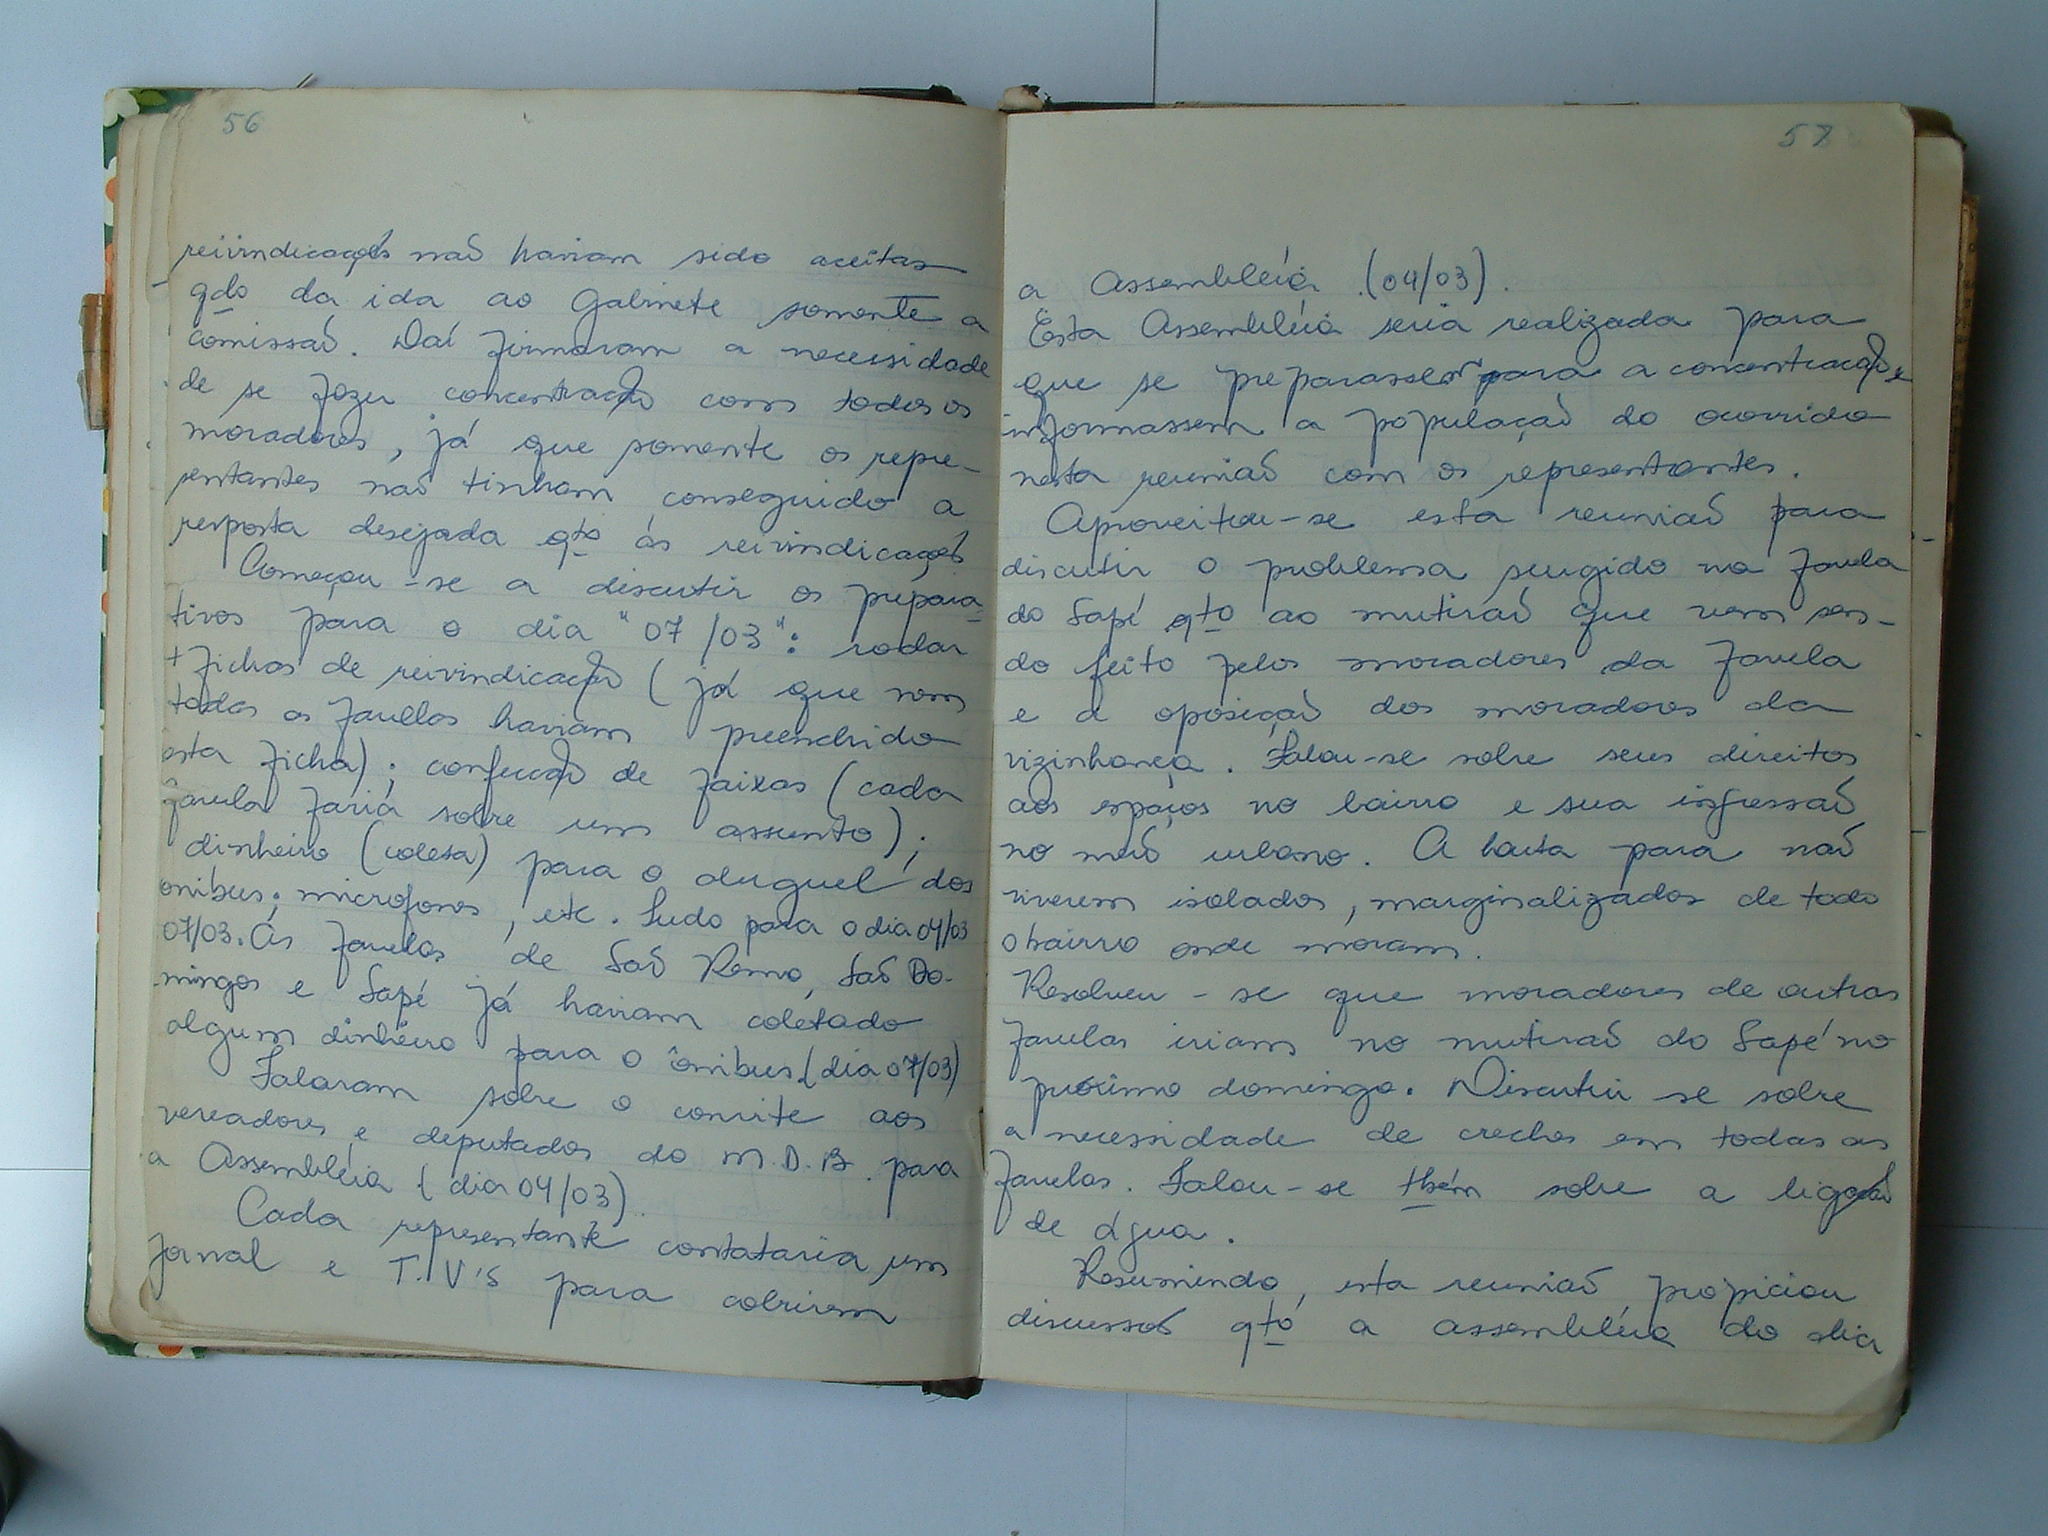 56
reivindicações não haviam sido aceitas
qdo da ida ao Gabinete somente a
comissão. Daí firmaram a necessidade
de se fazer concentração com todos os
moradores, já que somente os repre-
sentantes não tinham conseguido a
resposta desejada qto às reivindicações
Começou-se a discutir os prepara-
tivos para o dia "07/03": rodar
+ fichas de reivindicação (já que nem
todas as favellas haviam preenchido
esta ficha); confecção de faixas (cada
favela faria sobre um assunto);
dinheiro (coleta) para o aluguel dos
onibus; microfones, etc. Tudo para o dia 04/03
07/03. As favelas de São Remo, São Do-
mingos e Sapé já haviam coletado
algum dinheiro para o ônibus. (dia 07/03)
Falaram sobre o convite aos
vereadores e deputados do M.D.B. para
a Assembléia (dia 04/03).
Cada representante contataria um
jornal e T.V's para cobrirem
57
a Assembléia (04/03).
Esta Assembléia seria realizada para
que se preparassem para a concentração e
informassem a população do ocorrido
nesta reunião com os representantes.
Aproveitou-se esta reunião para
discutir o problema surgido na favela
do Sapé qto ao mutirão que vem sen-
do feito pelos moradores da favela
e a oposição dos moradores da
vizinhança. Falou-se sobre seus direitos
aos espaços no bairro e sua
no meio urbano. A luta para não
viverem isolados, marginalizados de todo
o bairro onde moram.
Resolveu-se que moradores de outras
favelas iriam no mutirão do Sapé no
próximo domingo. Discutiu se sobre
a necessidade de creches em todas as
favelas. Falou-se tbém sobre a ligação
de água.
Resumindo, esta reunião propiciou
discussões qto a assembléia do dia